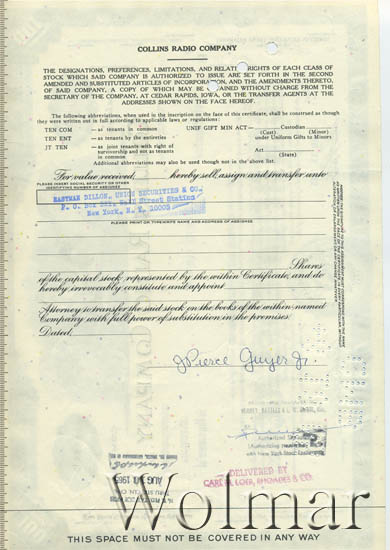 COLLINS RADIO COMPANY
THE DESIGNATIONS, PREFERENCES, LIMITATIONS, AND RELATIVE RIGHTS OF EACH CLASS OF
STOCK WHICH SAID COMPANY IS AUTHORIZED TO ISSUE ARE SET FORTH IN THE SECOND
AMENDED AND SUBSTITUTED ARTICLES OF INCORPORATION, AND THE AMENDMENTS THERETO,
OF SAID COMPANY, A COPY OF WHICH MAY BE OBTAINED WITHOUT CHARGE FROM THE
SECRETARY OF THE COMPANY, AT CEDAR RAPIDS, IOWA, OR THE TRANSFER AGENTS AT THE
ADDRESSES SHOWN ON THE FACE HEREOF.
The following abbreviations, when used in the inscription on the face of this certificate, shall be construed as though
they were written out in full according to applicable laws or regulations:
TEN COM —as tenants in common UNIF GIFT MIN ACT— Custodian
(Cust) (Minor)
TEN ENT —as tenants by the entireties under Uniform Gifts to Minors
JT TEN —as joint tenants with right of survivorship and not as tenants in common
Act
(State)
Additional abbreviations may also be used though not in the above list.
For value received, hereby sell, assign and transfer unto
PLEASE INSERT SOCIAL SECURITY OR OTHER
IDENTIFYING NUMBER OF ASSIGNEE
EASTMAN DILLON, UNION SECURITIES & CO.
Street Station
New York, N. Y. 10005
PLEASE PRINT OR TYPEWRITE NAME AND ADDRESS OF ASSIGNEE
Shares
of the capital stock represented by the within Certificate, and do
hereby irrevocably constitute and appoint
Attorney to transfer the said stock on the books of the within named
Company with full power of substitution in the premises.
Dated
J Pierce Guyer Jr.
Authorized
with New York Stock Exchange
DELIVERED BY
CARL M. LOEB, RHOADES & CO.
AUG 1965
Wolmar
THIS SPACE MUST NOT BE COVERED IN ANY WAY